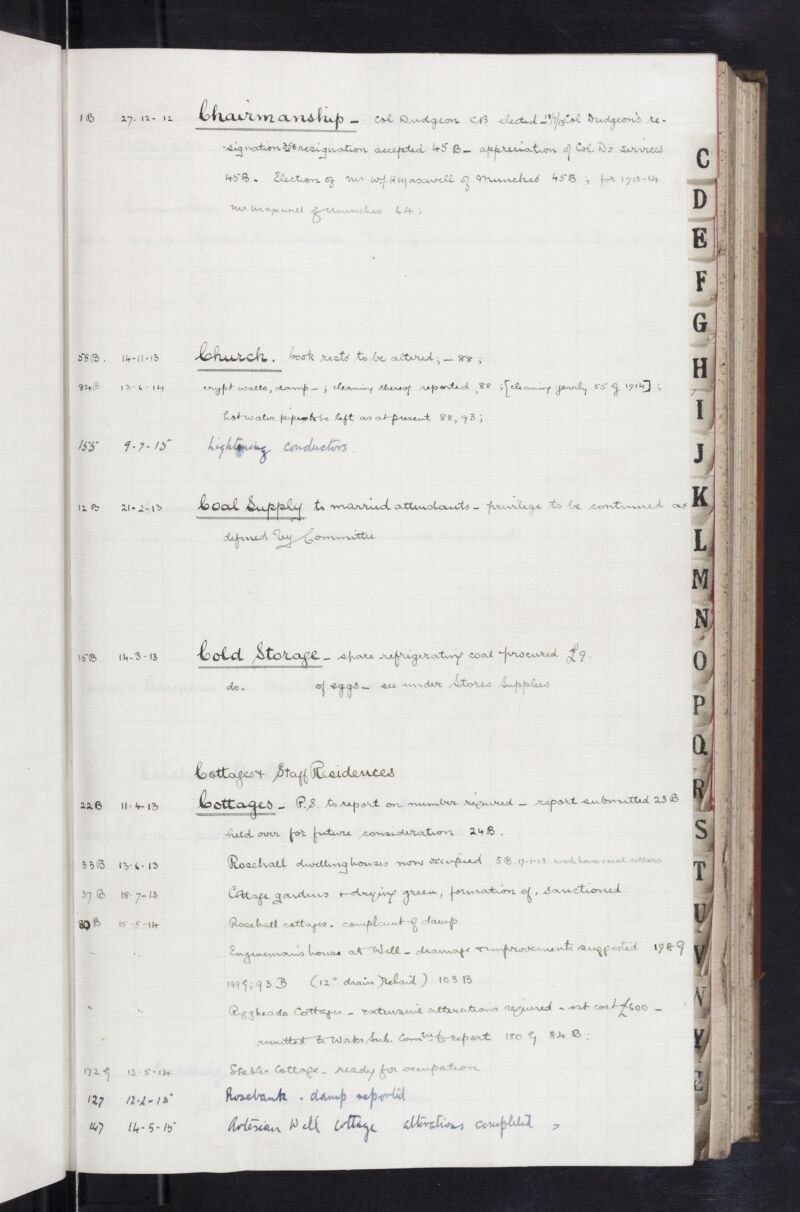 1B 27.12-12 Chairmanship - Col Dudgeon CB elected - Col Dudgeon's re-
signation 35B resignation accepted 45B - appreciation of Col. D's services
45B. Election of Mr W.J.H Maxwell of Munches 45B; for 1913-14
Mr Maxwell of Munches 64;
58B. 14-11-13 Church. book rests to be altered; - 88;
84B 13-6-14 crypt walls, damp - ; cleaning thereof reported, 88; [cleaning yearly 55 G 1914];
hot water pipes to be left as at present 88, 93;
155 9-7-15 Lightening conductors.
12B 21-2-13 Coal Supply to married attendants - privilege to be continued as
defined by Committee
15B 14-3-13 Cold Storage - spare refrigerating coal procured £9.
do. of eggs - see under Stores Supplies
Cottages & Staff Residences
22B 11.4-13 Cottages - P.S. to report on number required - report submitted 23B
held over for future consideration 24B.
33B 13-6-13 Rosehall dwelling houses now occupied 5B. 17-1-13 wash house & coal cellars
37B 18-7-13 Cottage gardens & drying green, formation of, sanctioned
80B 15-5-14 Rosehall cottages. complaint of damp
" " Engineman's house at Well - drainage & improvements suggested 198G
199G; 93B (12" drain relaid) 103B
" " Piggheads Cottages - extensive alterations required - est cost £600 -
remitted to Wrks Sub. Comtee to report 180G 84B;
172G 13-5-14 Stables Cottage - ready for occupation
127 12-2-15 Rosebank. damp reported
147 14-5-15 Artesian Well Cottage alterations completed
C
D
E
F
G
H
I
J
K
L
M
N
O
P
Q
R
S
T
U
V
W
Y